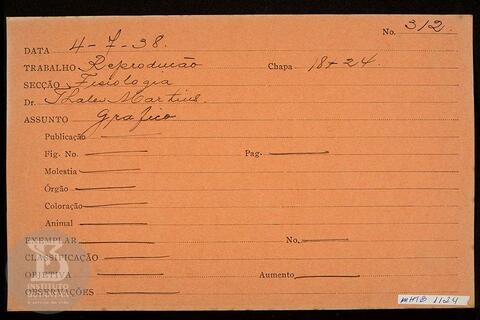 No. 312.
DATA 4-7-38.
TRABALHO Reprodução Chapa 18+24.
SECÇÃO Fisiologia
Dr. Thales Martins.
ASSUNTO Grafico
Publicação
Fig. No. Pag.
Molestia
Órgão
Coloração
Animal
EXEMPLAR No.
CLASSIFICAÇÃO
OBJETIVA Aumento
OBSERVAÇÕES
INSTITUTO
BUTANTAN
A serviço da vida
MHIB 1134